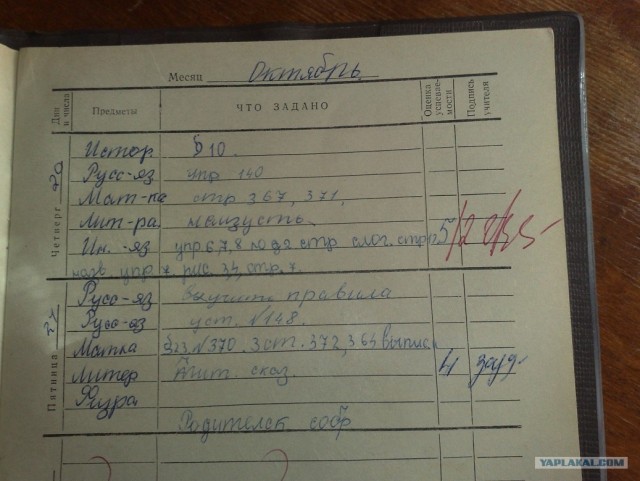 Месяц Октябрь
Дни и числа Предметы ЧТО ЗАДАНО Оценка успевае- мости Подпись учителя
Четверг
Истор § 10.
Русс-яз упр 140
Мат-ка стр 367, 371,
Лит-ра. наизусть.
Ин.-яз упр 6,7,8 стр слог. стр 5/2
упр рис. 34, стр. 7.
Пятница
Русс-яз выучить правила
Русс-яз уст. №148.
Матка №370. 3 ст. 372, 364 выписк
Литер сказ. 4
Физра
Родительск собр
YAPLAKAL.COM